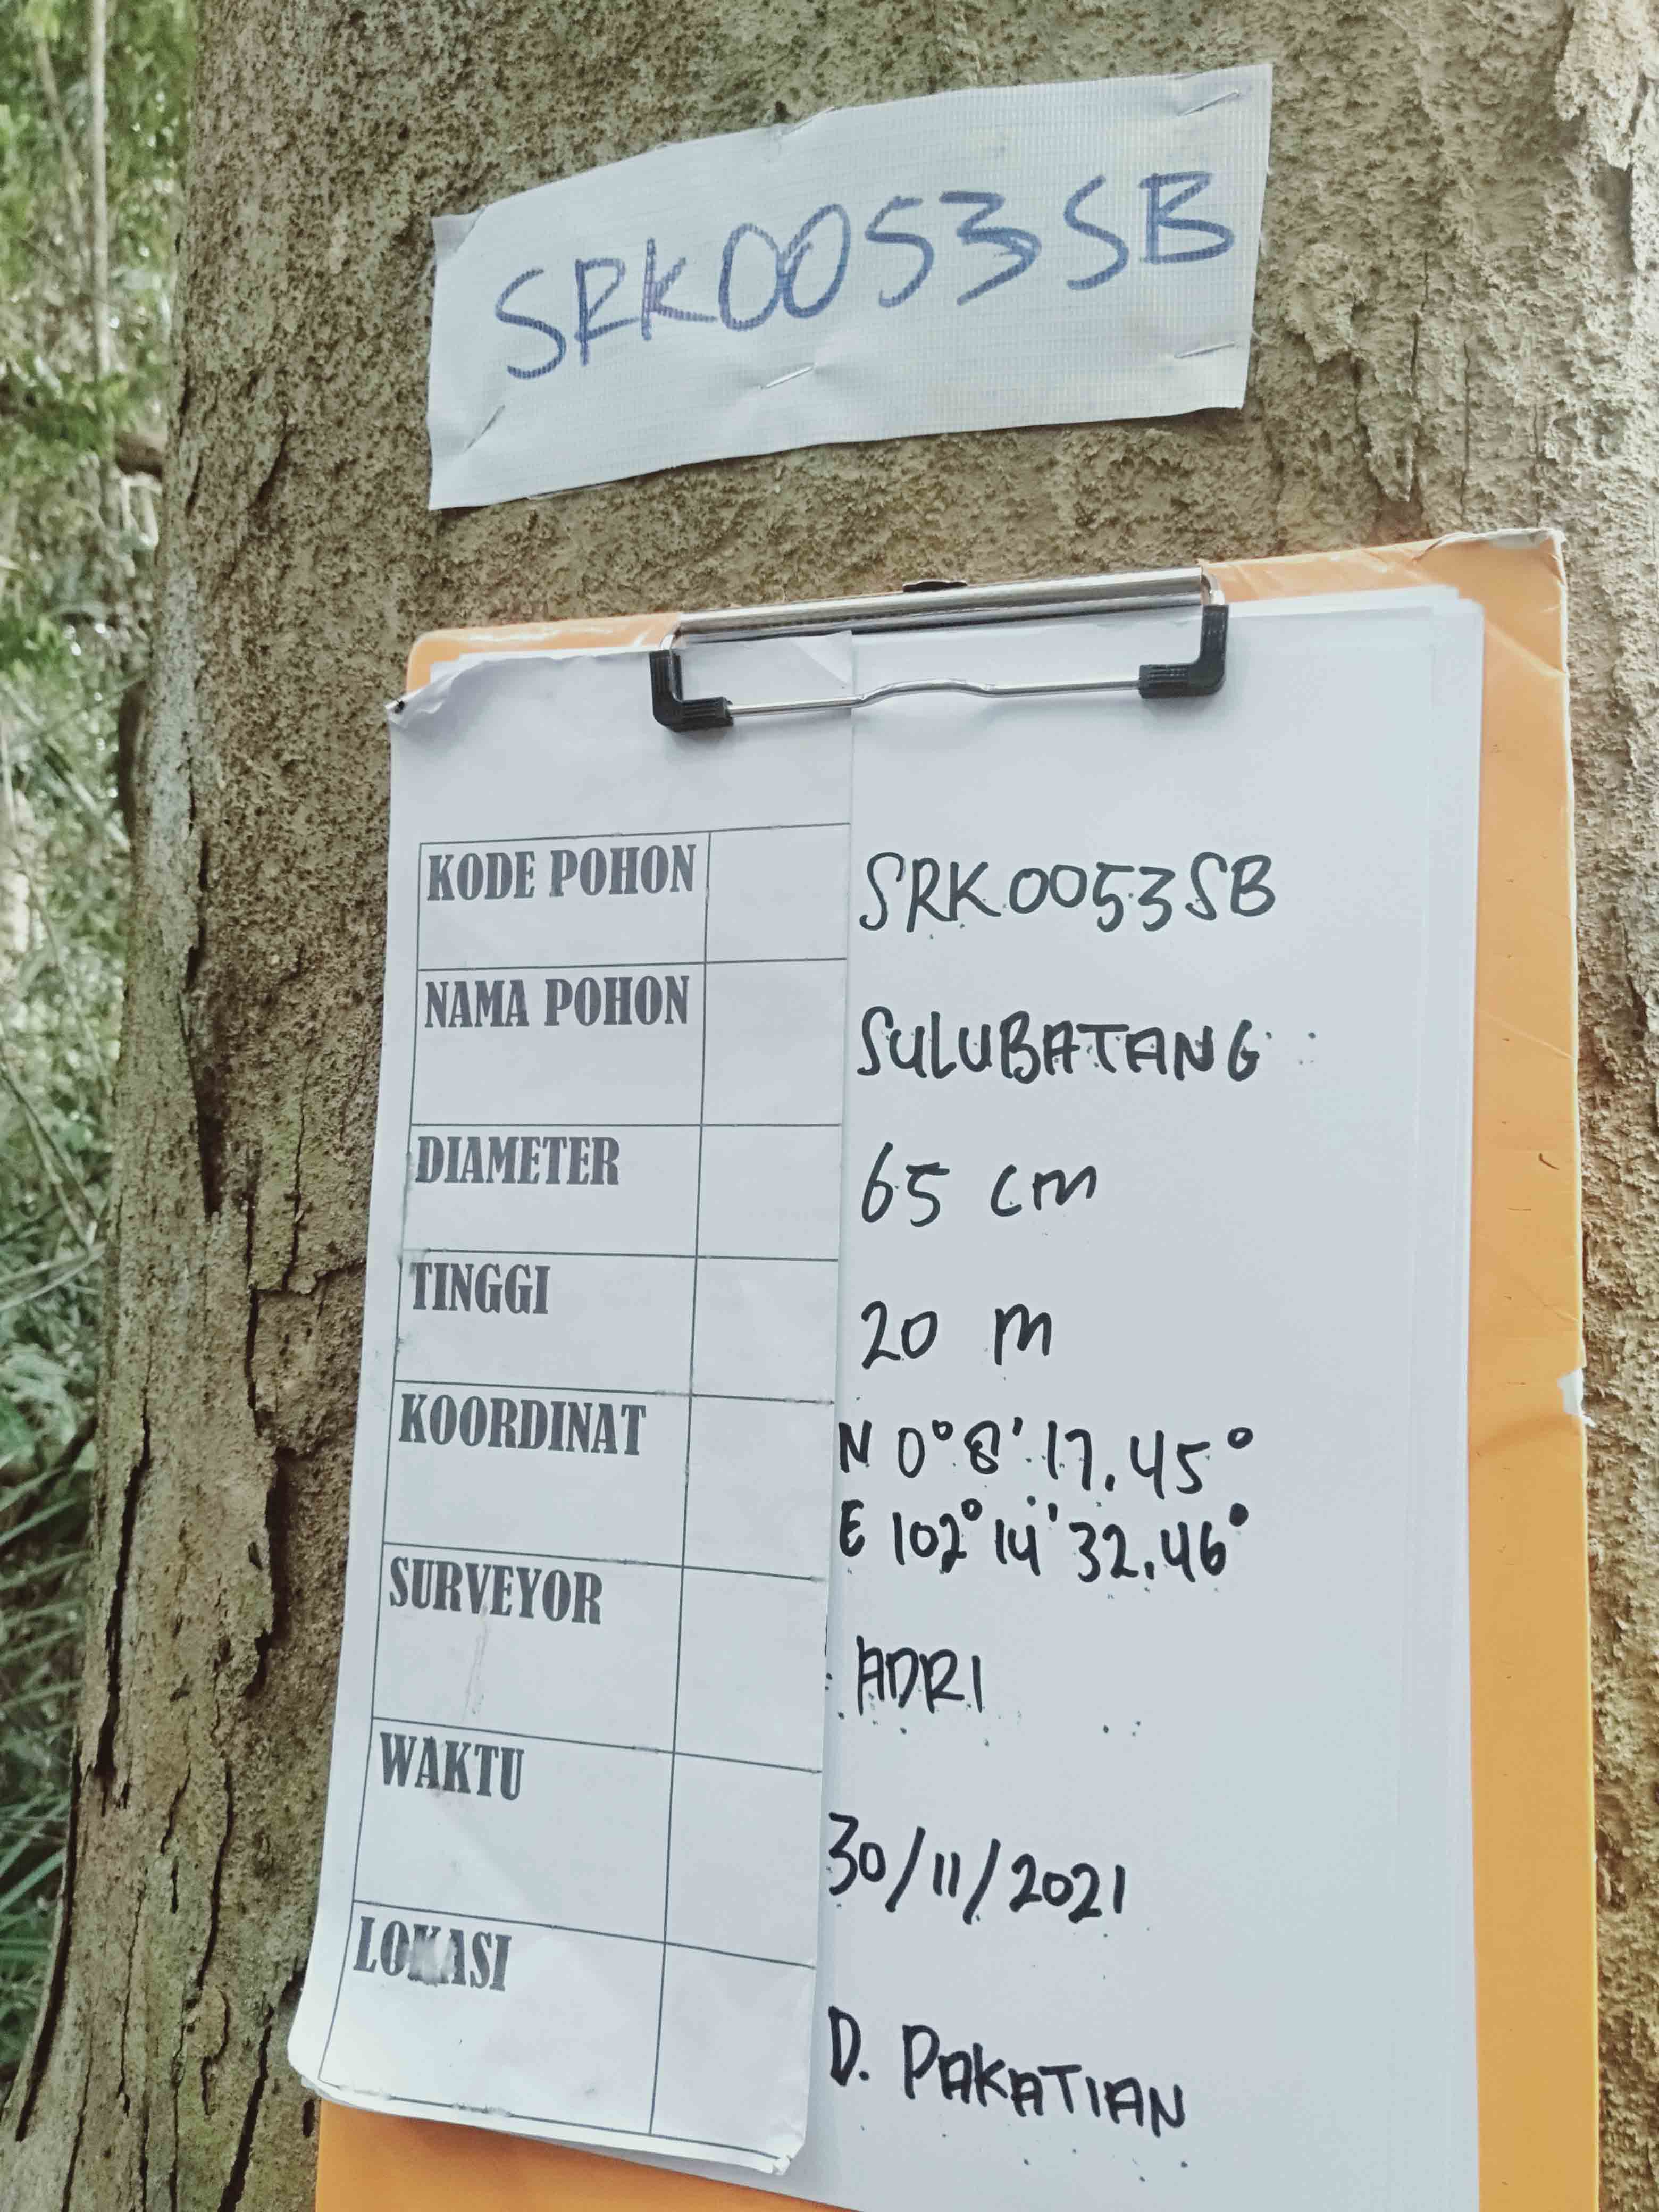 SRK0053SB
KODE POHON SRK0053SB
NAMA POHON SULUBATANG
DIAMETER 65 cm
TINGGI 20 m
KOORDINAT N 0°8'17.45°
E 102°14'32.46°
SURVEYOR ADRI
WAKTU 30/11/2021
LOKASI D. PAKATIAN